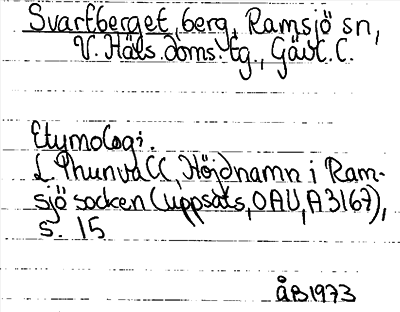 Svartberget, berg, Ramsjö sn,
V. Häls. doms. tg., Gävl. l.
Etymologi.
L. Thunvall, Höjdnamn i Ram-
sjö socken (uppsats, OAU, A3167),
s. 15
ÅB1973